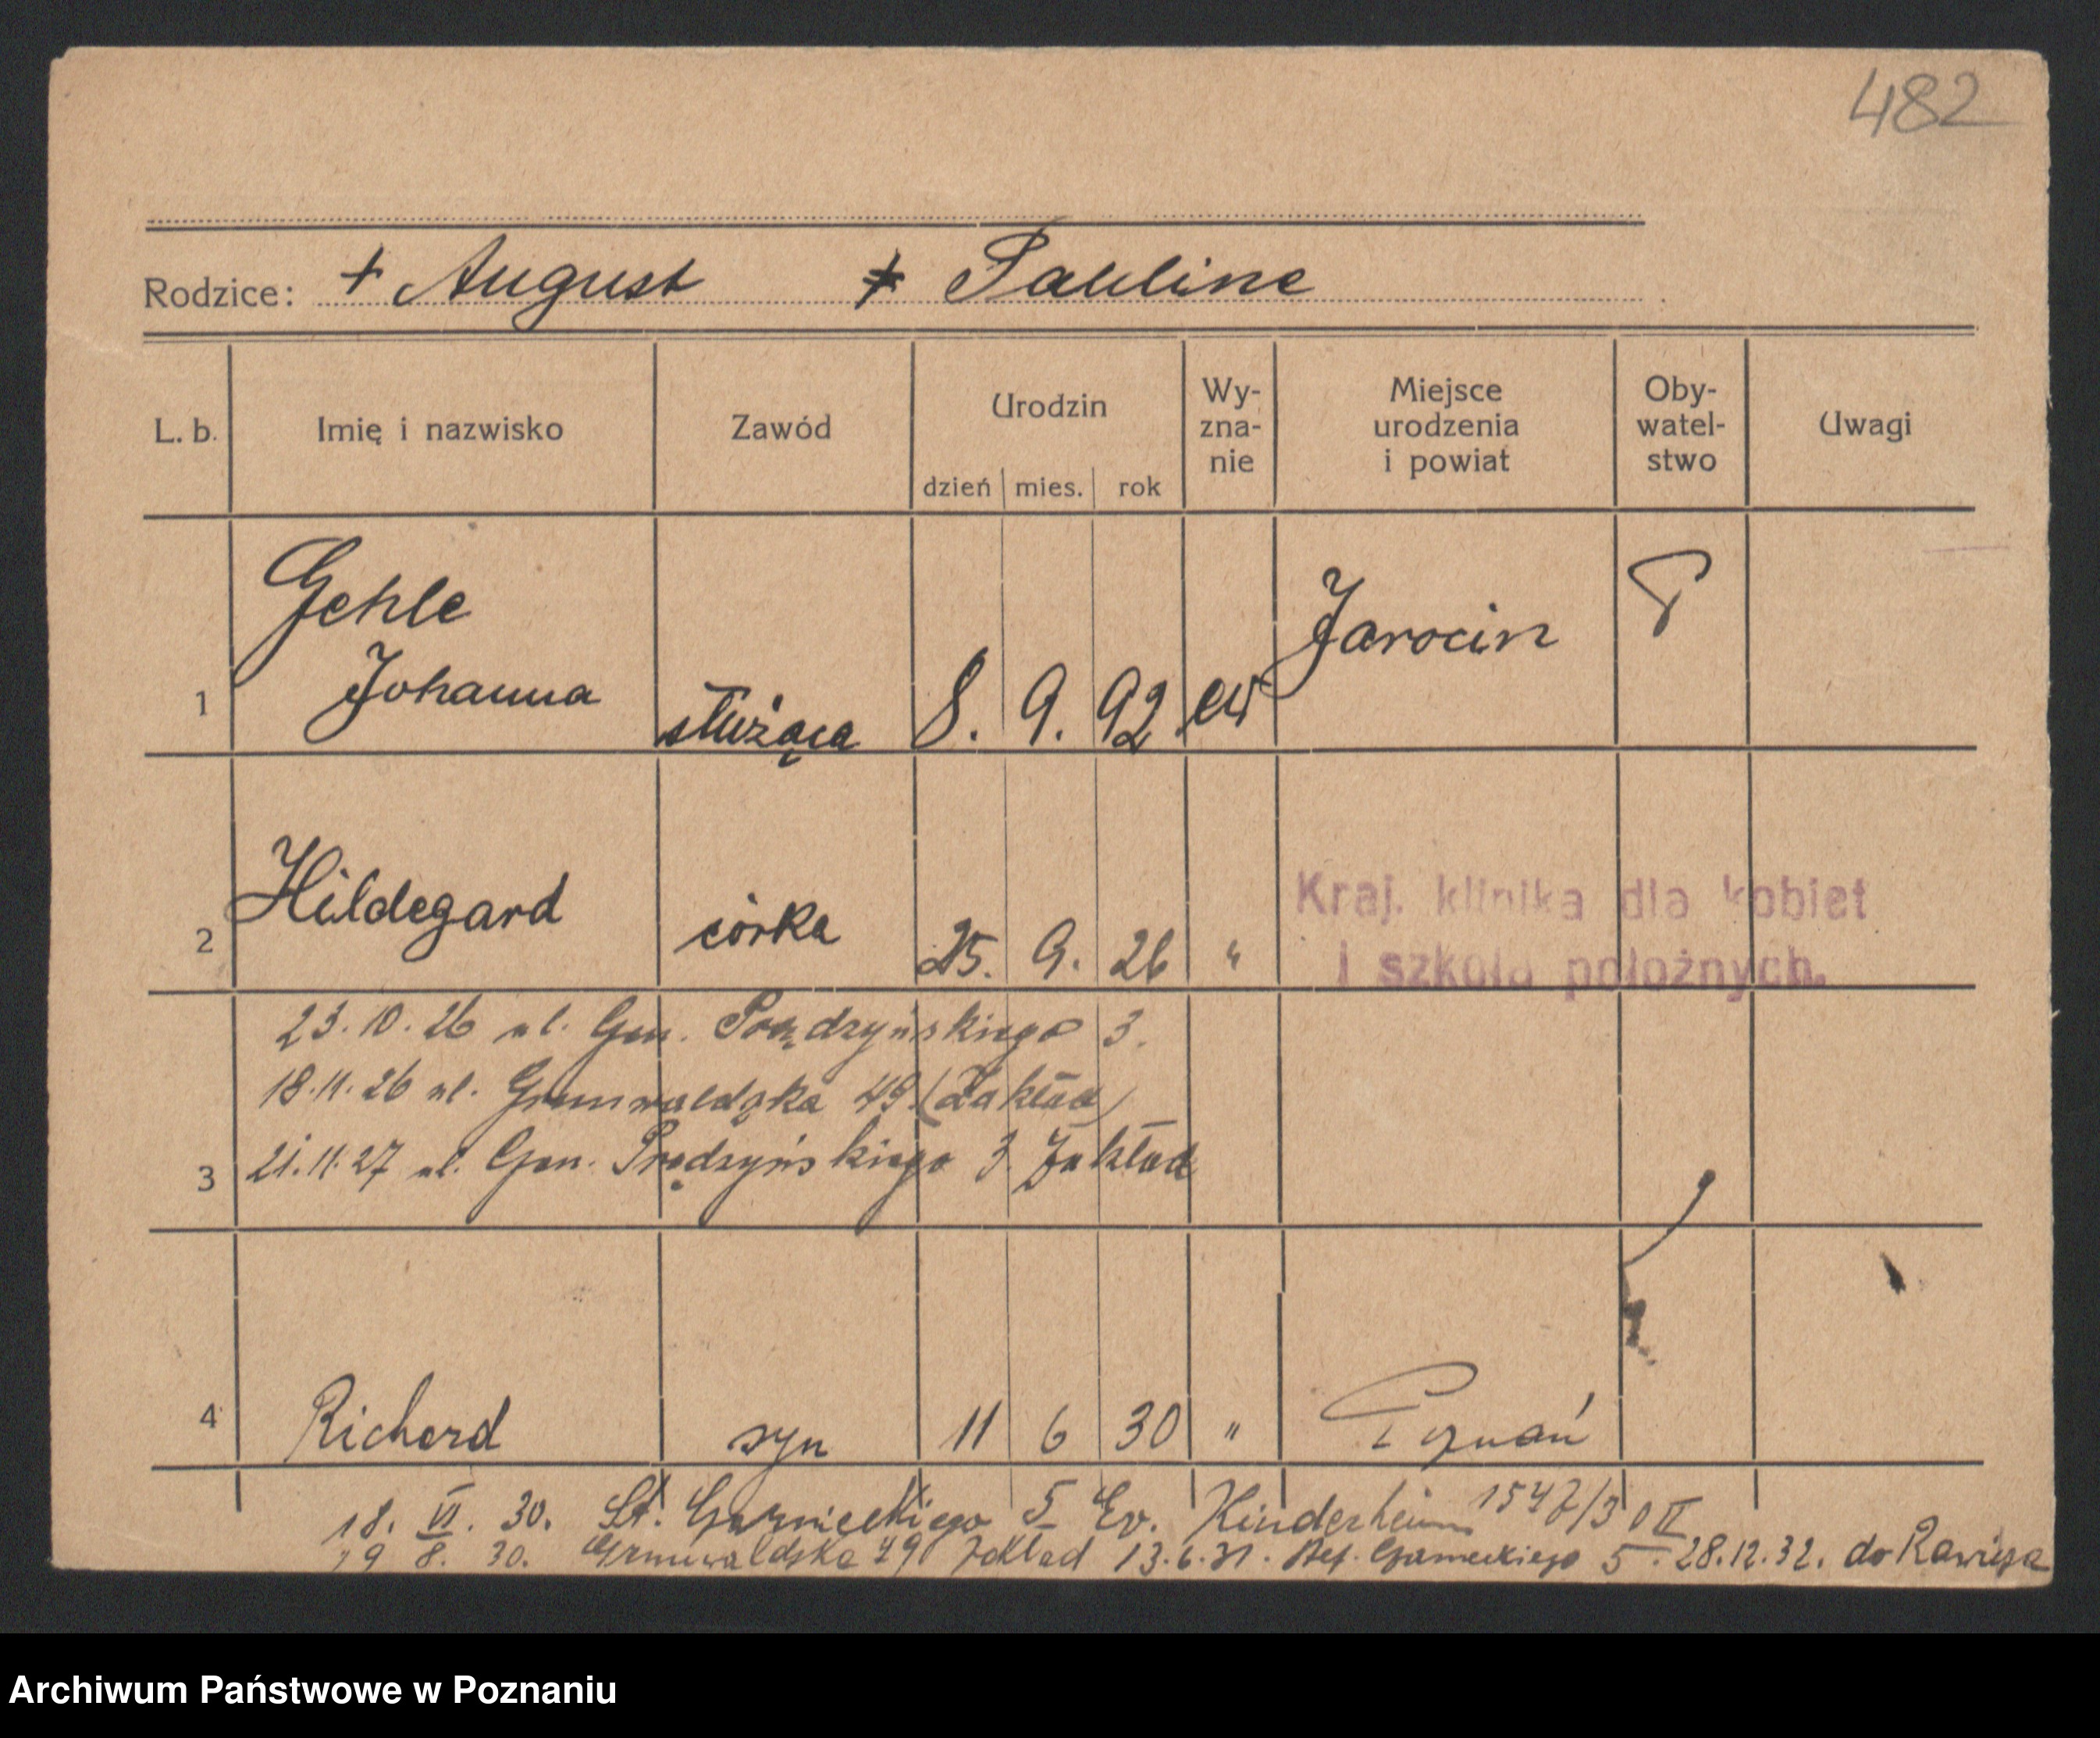 482
Rodzice: + August + Pauline
L. b. Imię i nazwisko Zawód Urodzin dzień mies. rok Wy- zna- nie Miejsce urodzenia i powiat Oby- watel- stwo Uwagi
Gehle
1 Johanna służąca 8. 9. 92 ew Jarocin P
2 Hildegard córka 25. 9. 26 "
Kraj. klinika dla kobiet
i szkoła położnych.
23.10.26 ul. Gen. Prądzyńskiego 3.
18.11.26 ul. Grunwaldzka 49 (Zakład)
3 21.11.27 ul. Gen. Prądzyńskiego 3. Zakład
4 Richard syn 11 6 30 " Poznań
18. VI. 30. St. Czarnieckiego 5 Ev. Kinderheim 1547/30 II
19 8. 30. Grunwaldska 49 Zakład 13.6.31. Stef. Czarneckiego 5. 28.12.32. do Rawicza
Archiwum Państwowe w Poznaniu